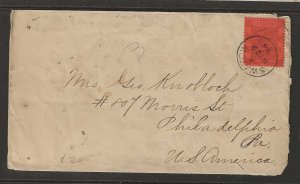 Mrs. Geo. Knobloch
# 807 Morris St
Philadelphia
Pa.
U.S. America